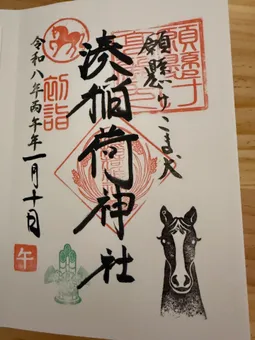 願懸けこま犬
湊稲荷神社
初詣
令和八年丙午年一月十日
午